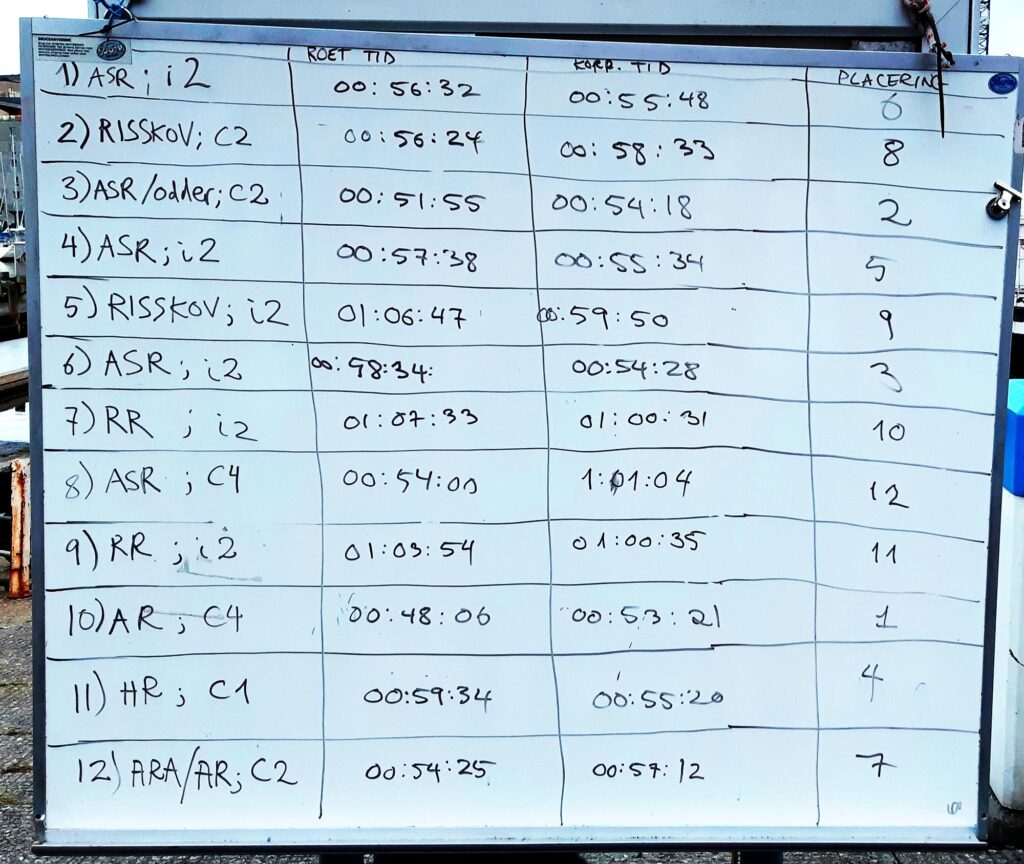 ROET TID KORR. TID PLACERING
1) ASR; i2 00:56:32 00:55:48 6
2) RISSKOV; C2 00:56:24 00:58:33 8
3) ASR/odder; C2 00:51:55 00:54:18 2
4) ASR; i2 00:57:38 00:55:34 5
5) RISSKOV; i2 01:06:47 00:59:50 9
6) ASR; i2 00:58:34: 00:54:28 3
7) RR ; i2 01:07:33 01:00:31 10
8) ASR ; C4 00:54:00 1:01:04 12
9) RR ; i2 01:03:54 01:00:35 11
10) AR ; C4 00:48:06 00:53:21 1
11) HR ; C1 00:59:34 00:55:20 4
12) ARA/AR; C2 00:54:25 00:57:12 7